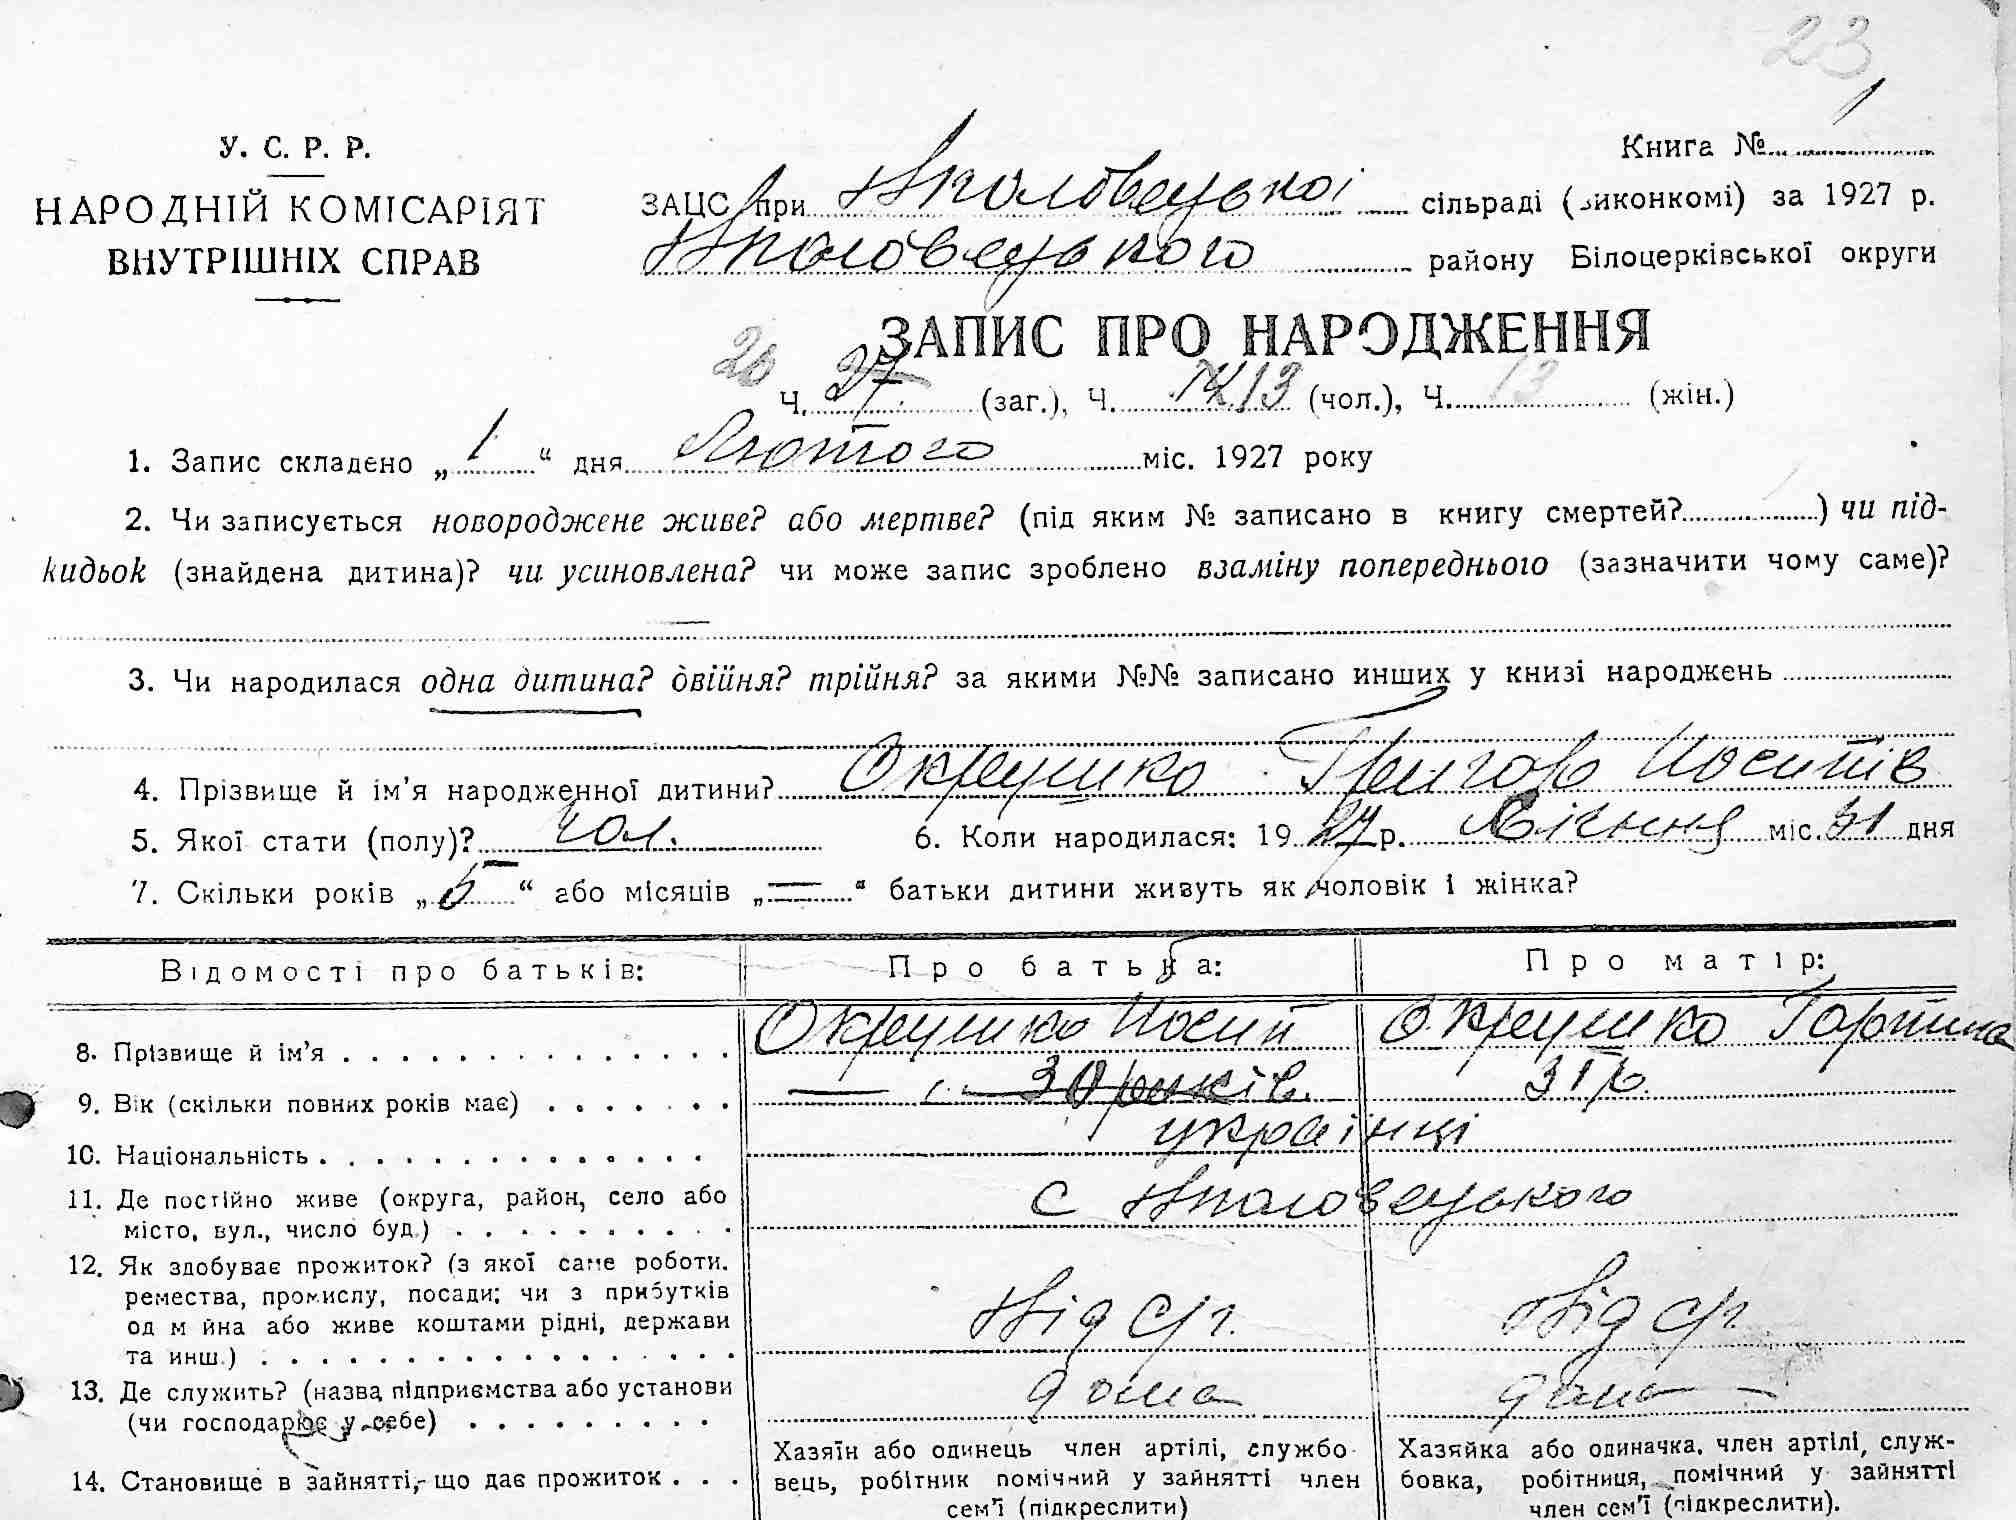 23
У. С. Р. Р.
НАРОДНІЙ КОМІСАРІЯТ
ВНУТРІШНІХ СПРАВ
Книга № 1
ЗАЦС при сільраді (виконкомі) за 1927 р.
району Білоцерківської округи
ЗАПИС ПРО НАРОДЖЕННЯ
26 Ч. 27 (заг.), Ч. 14 13 (чол.), Ч. 13 (жін.)
1. Запис складено „ 1 “ дня Лютого міс. 1927 року
2. Чи записується новороджене живе? або мертве? (під яким № записано в книгу смертей? ) чи під-
кидьок (знайдена дитина)? чи усиновлена? чи може запис зроблено взаміну попереднього (зазначити чому саме)?
—
3. Чи народилася одна дитина? двійня? трійня? за якими №№ записано инших у книзі народжень
4. Прізвище й ім’я народженної дитини? Окрушко Григор Йосипів
5. Якої стати (полу)? чол. 6. Коли народилася: 19 27 р. Січння міс. 31 дня
7. Скільки років „ 5 “ або місяців „ = “ батьки дитини живуть як чоловік і жінка?
Відомості про батьків: Про батька: Про матір:
8. Прізвище й ім’я Окрушко Йосип Окрушко Гортина
9. Вік (скільки повних років має) 30 років. 31 р.
10. Національність українці
11. Де постійно живе (округа, район, село або
місто, вул., число буд.) с
12. Як здобуває прожиток? (з якої саме роботи.
ремества, промислу, посади; чи з прибутків
од м йна або живе коштами рідні, держави
та инш.) Від с/г. Від с/г
13. Де служить? (назва підприємства або установи
(чи господарює у себе) дома дома
14. Становище в зайнятті, що дає прожиток
Хазяїн або одинець член артілі, службо
вець, робітник помічний у зайнятті член
сем’ї (підкреслити)
Хазяйка або одиначка, член артілі, служ-
бовка, робітниця, помічний у зайнятті
член сем’ї (підкреслити).